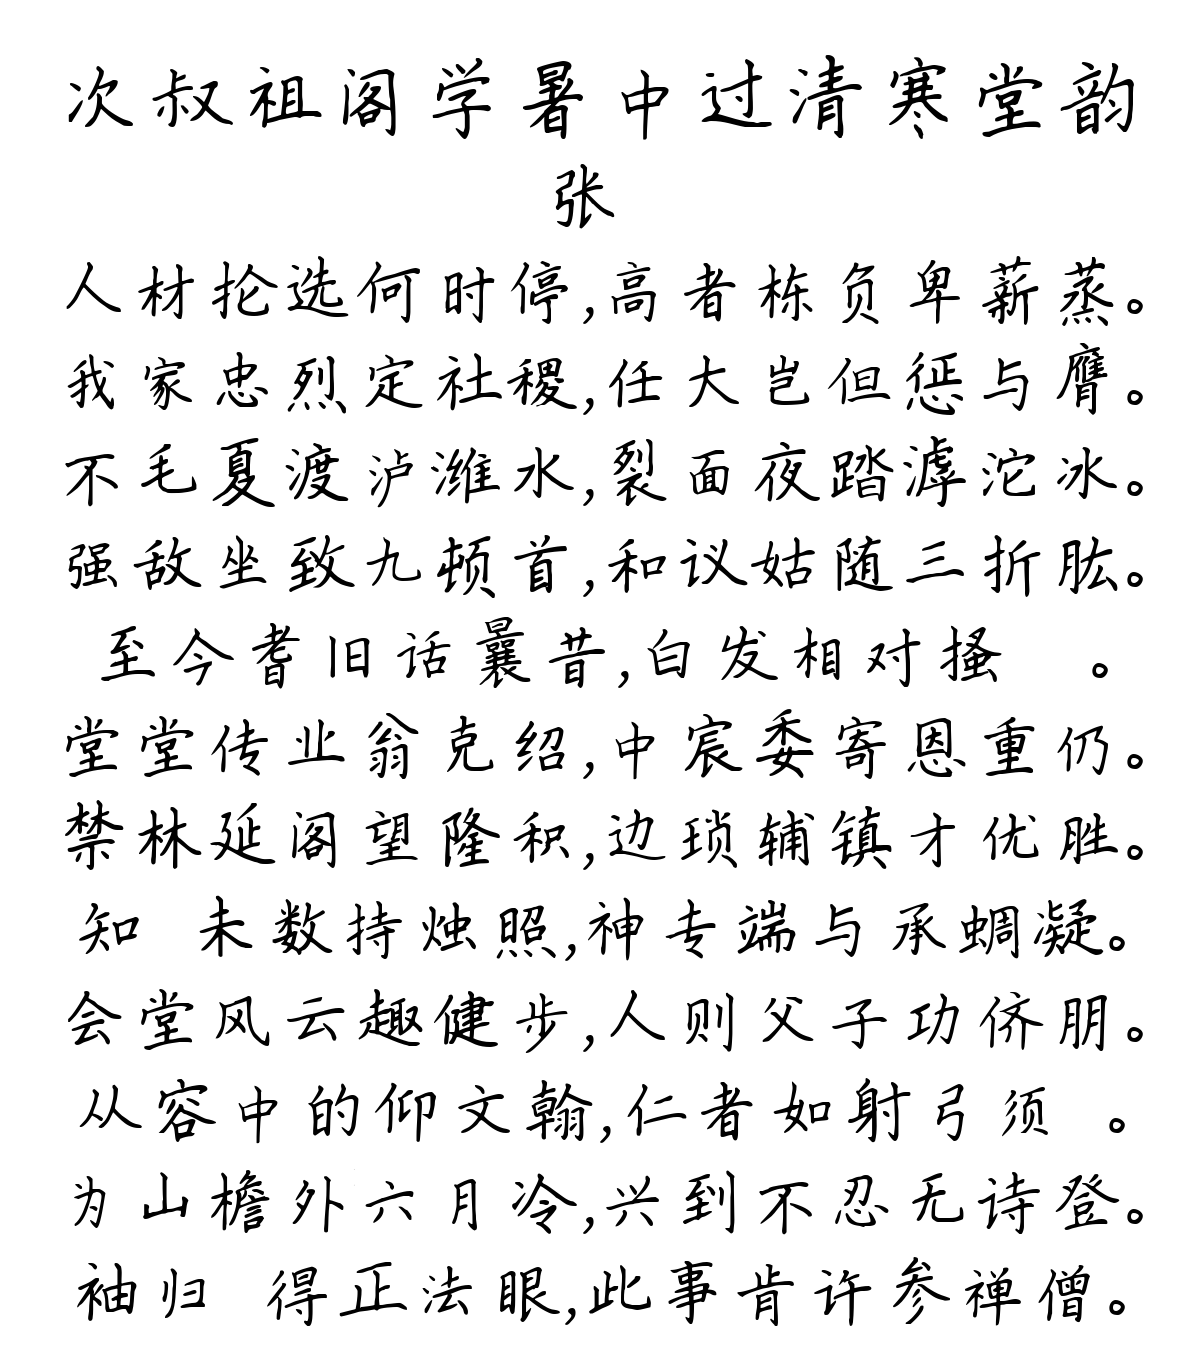 次叔祖阁学暑中过清寒堂韵
张
人材抡选何时停,高者栋负卑薪蒸。
我家忠烈定社稷,任大岂但惩与膺。
不毛夏渡泸潍水,裂面夜踏滹沱冰。
强敌坐致九顿首,和议姑随三折肱。
至今耆旧话曩昔,白发相对搔 。
堂堂传业翁克绍,中宸委寄恩重仍。
禁林延阁望隆积,边琐辅镇才优胜。
知 未数持烛照,神专端与承蜩凝。
会堂风云趣健步,人则父子功侪朋。
从容中的仰文翰,仁者如射弓须 。
为山檐外六月冷,兴到不忍无诗登。
袖归 得正法眼,此事肯许参禅僧。